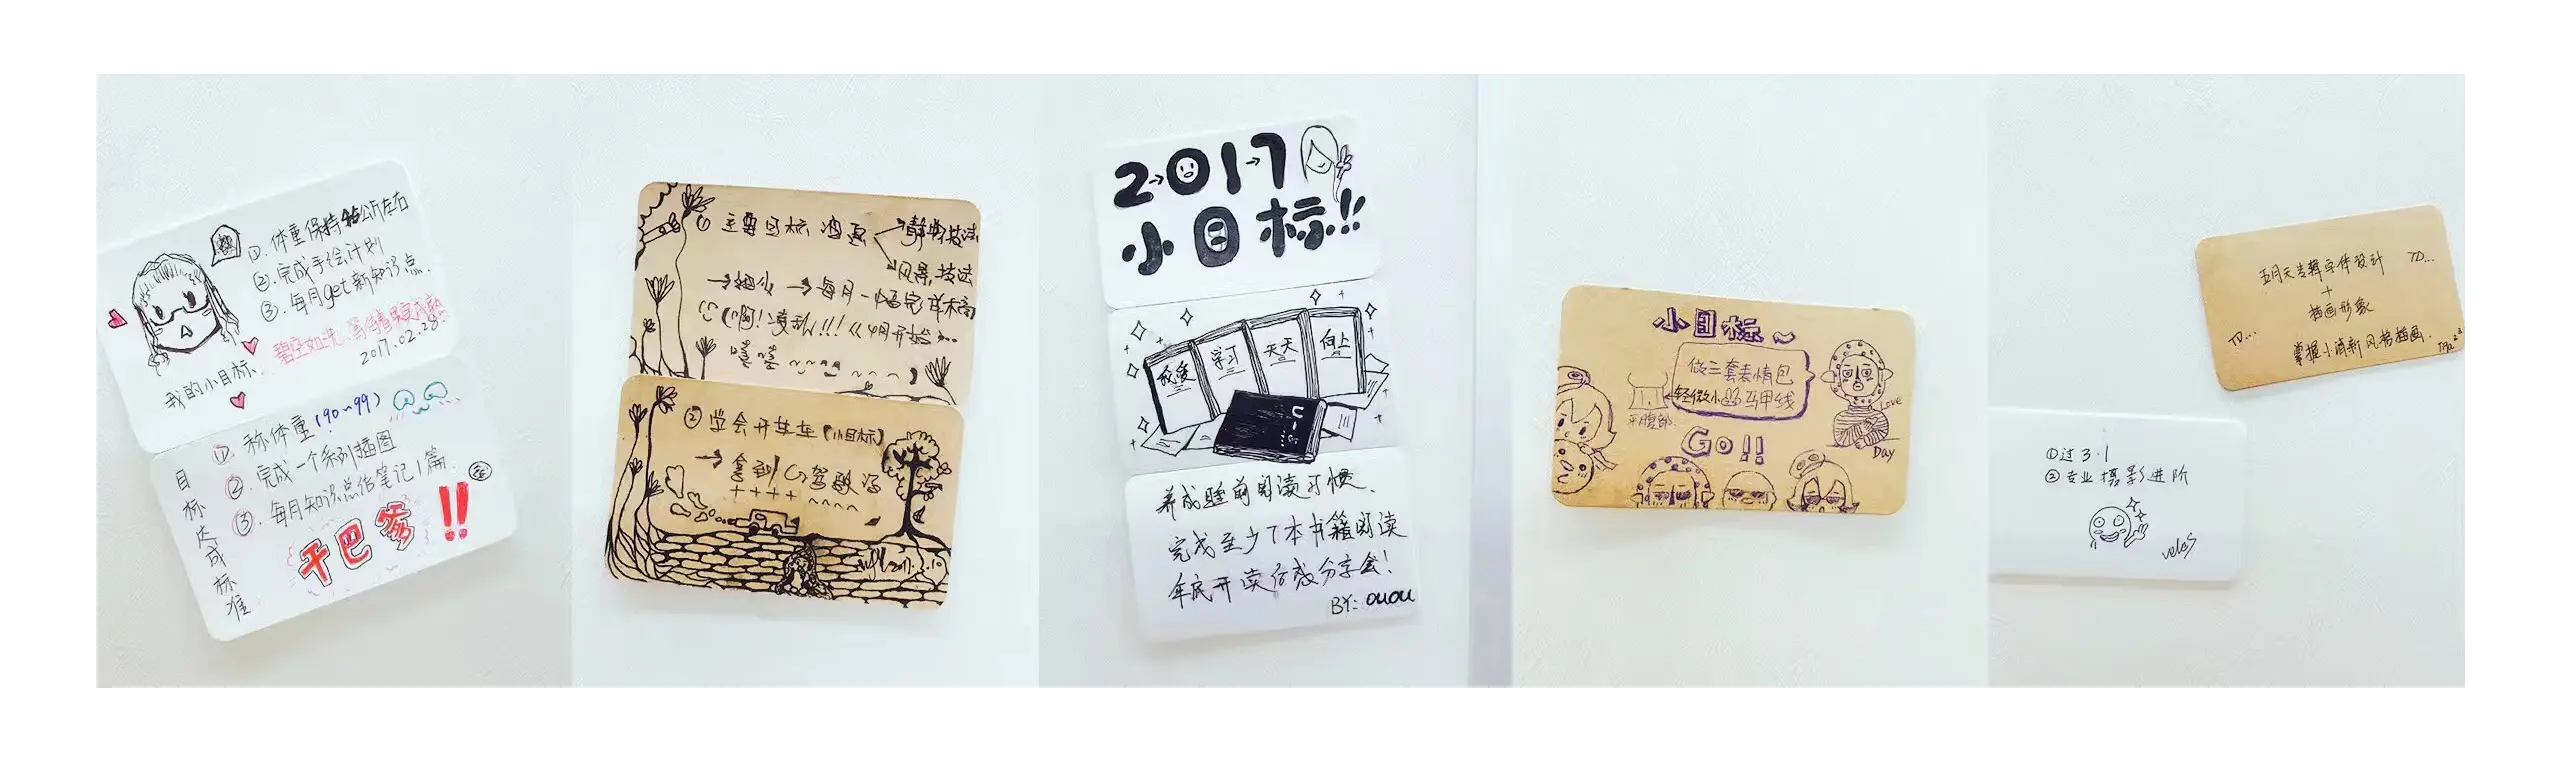 ①.体重保持 公斤左右
②.完成手绘计划
③.每月get新知识点.
碧空如洗.等待青果完成熟
2017.02.28
我的小目标、
目标达成标准
①.称体重(90~99)
②.完成一个系列插图
③.每月知识点作笔记1篇.
干巴爹!!
①主要目标 漫画
静物技法
风景技法
→每月一幅完
(啊!凌乱!!!《4月开始
②学会开车车(小目标)
→拿到 驾驶证
2017
小目标!!
我爱
学习
天天
向上
养成睡前阅读习惯、
完成至少7本书籍阅读
年底开读后感分享会!
BY: OUOU
小目标~
做三套表情包
轻微小 马甲线
平腹部.
GO!!
Love
Day
五月天专辑字体设计
+
插画形象
掌握小清新风格插画.
TD...
TD...
①过3.1
②专业摄影进阶